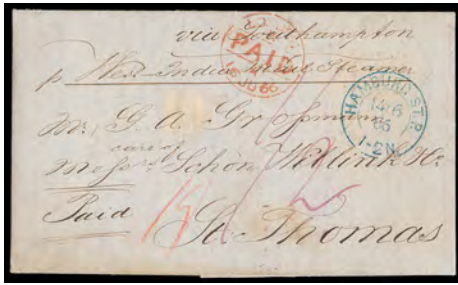 via Southampton
p West India Mail Steamer
PAID
JU 66
HAMBURG ST.P.
14/6
66
1-2N
Mr. G. A. Grossmann
care of
Messrs Schön Willink & Co
Paid
St. Thomas